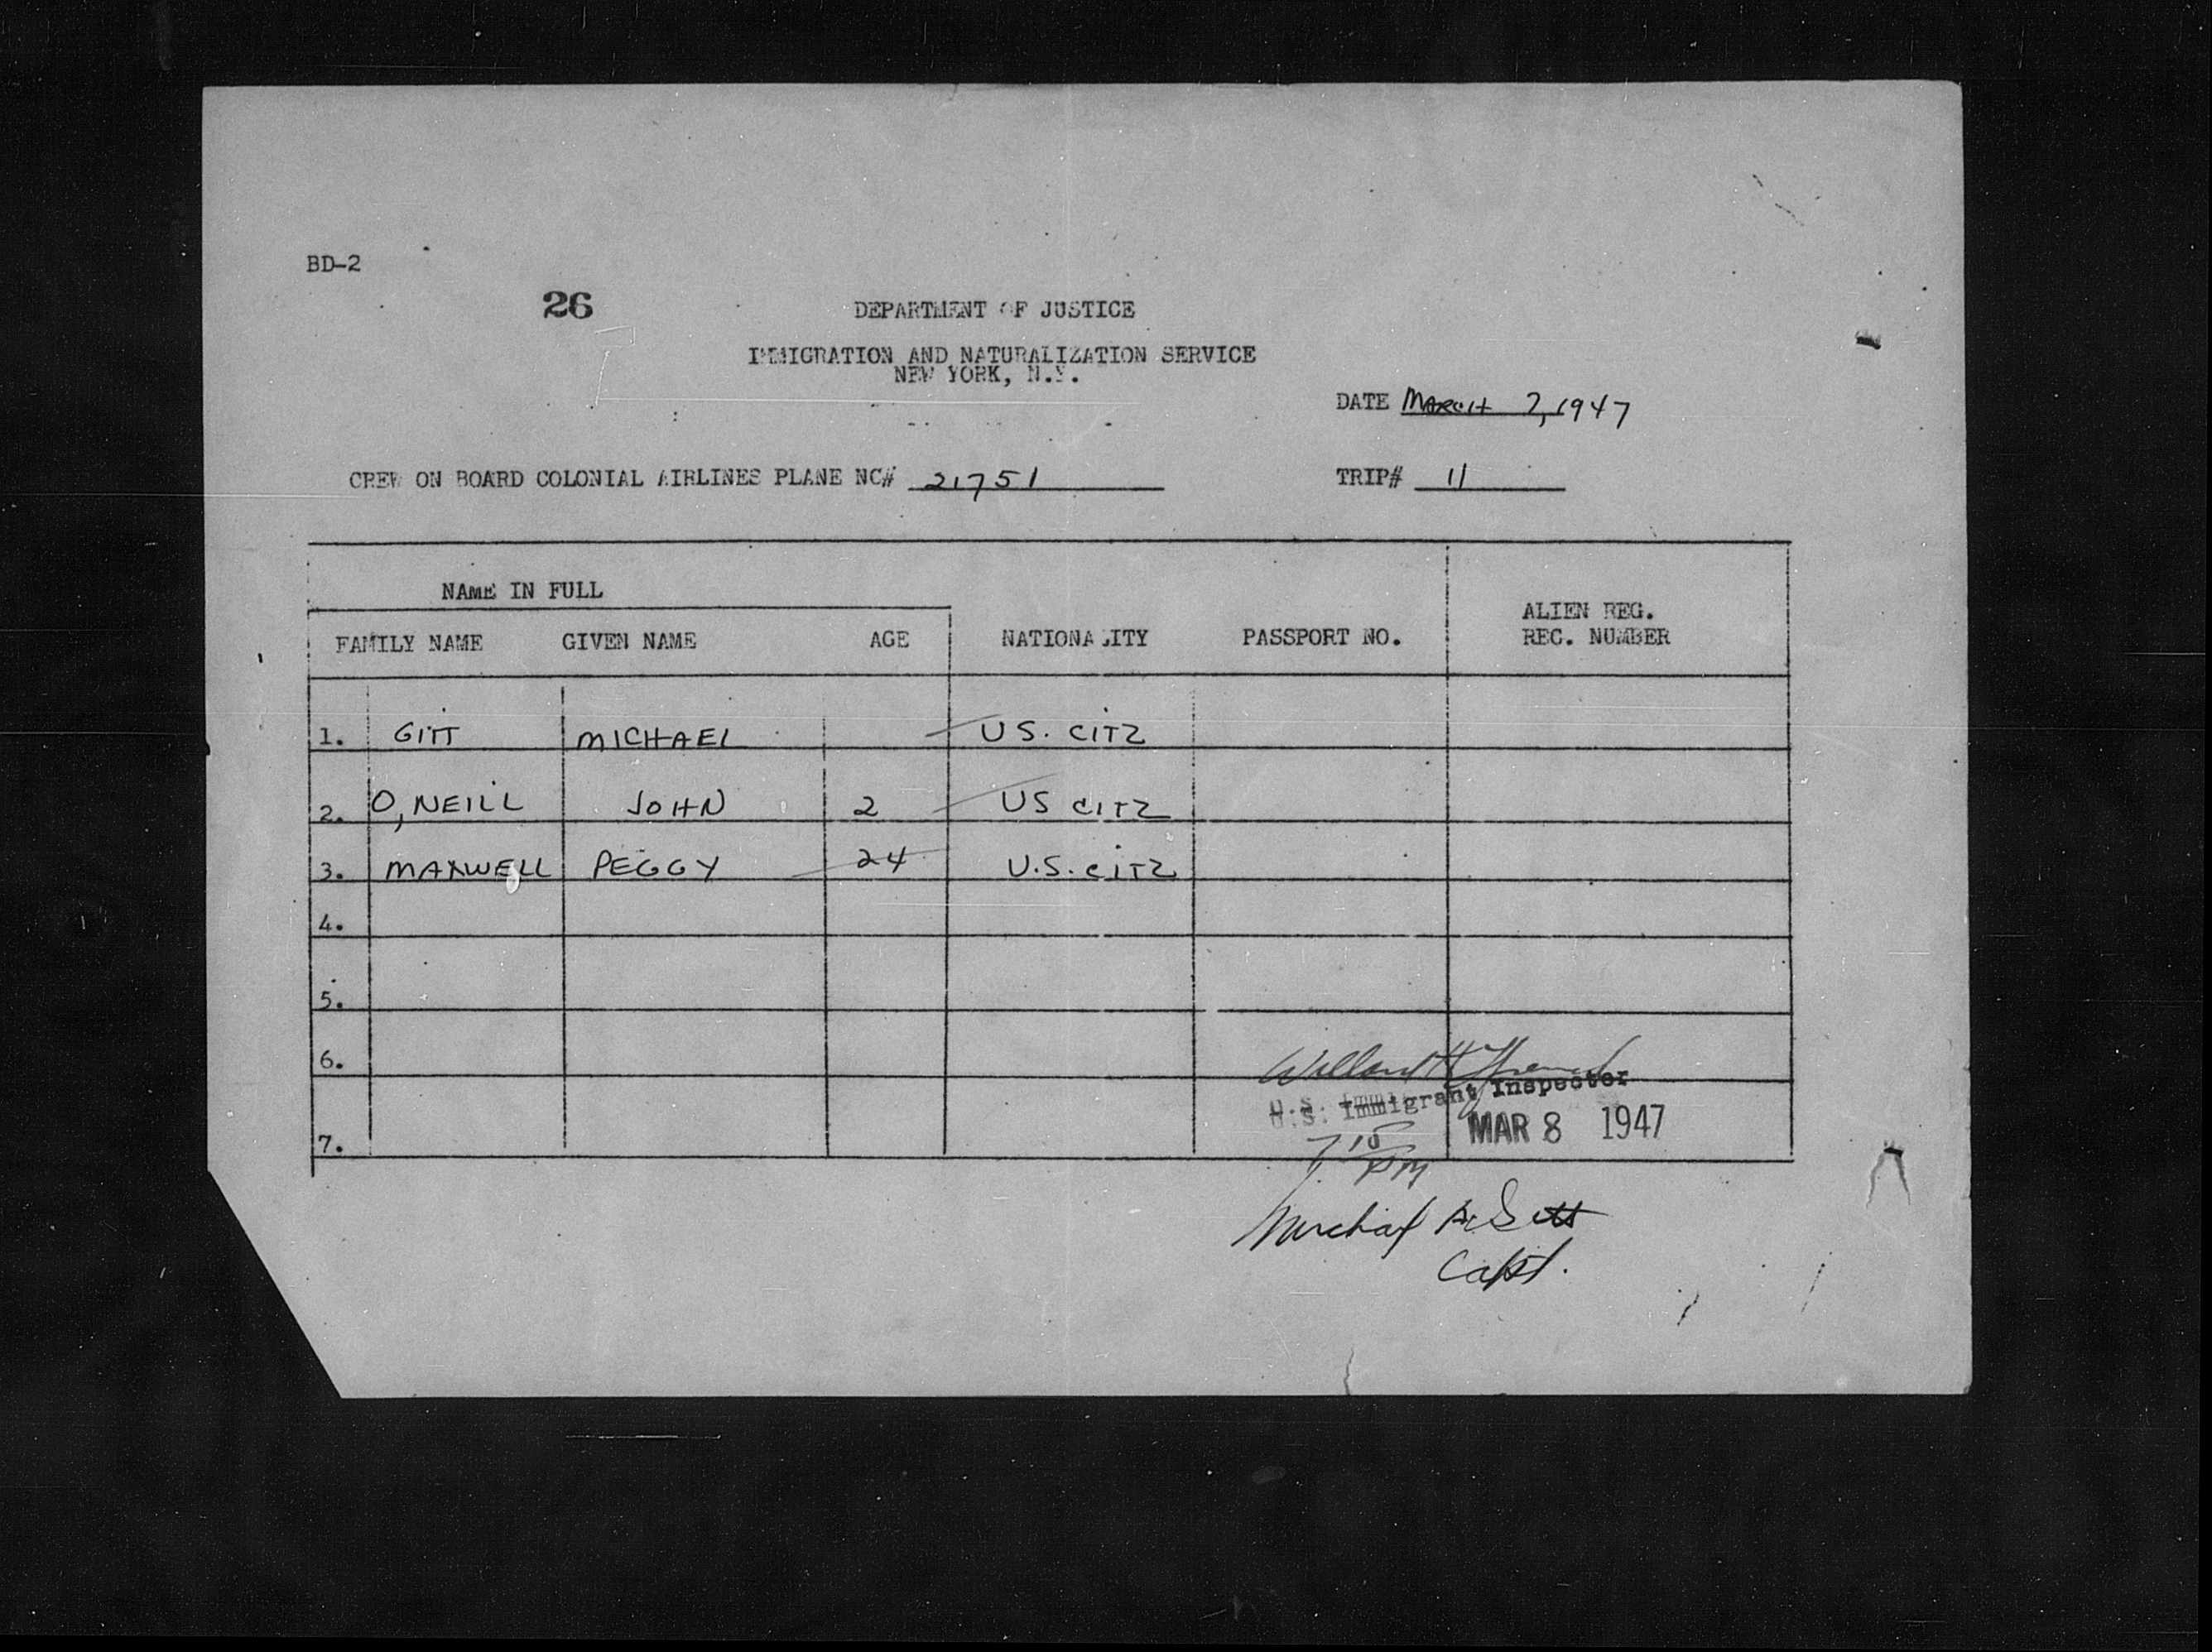 BD-2
26
DEPARTMENT OF JUSTICE
IMMIGRATION AND NATURALIZATION SERVICE
NEW YORK, N.Y.
DATE MARCH 7, 1947
CREW ON BOARD COLONIAL AIRLINES PLANE NC# 21751 TRIP# 11
NAME IN FULL
ALIEN REG.
FAMILY NAME GIVEN NAME AGE NATIONALITY PASSPORT NO. REC. NUMBER
1. GITT MICHAEL US. CITZ
2. O,NEILL JOHN 2 US CITZ
3. MAXWELL PEGGY 24 U.S. CITZ
4.
5.
6.
Willard H
U.S. Immigrant Inspector
MAR 8 1947
7.
7 10 PM
Michael A. Gitt
Capt.